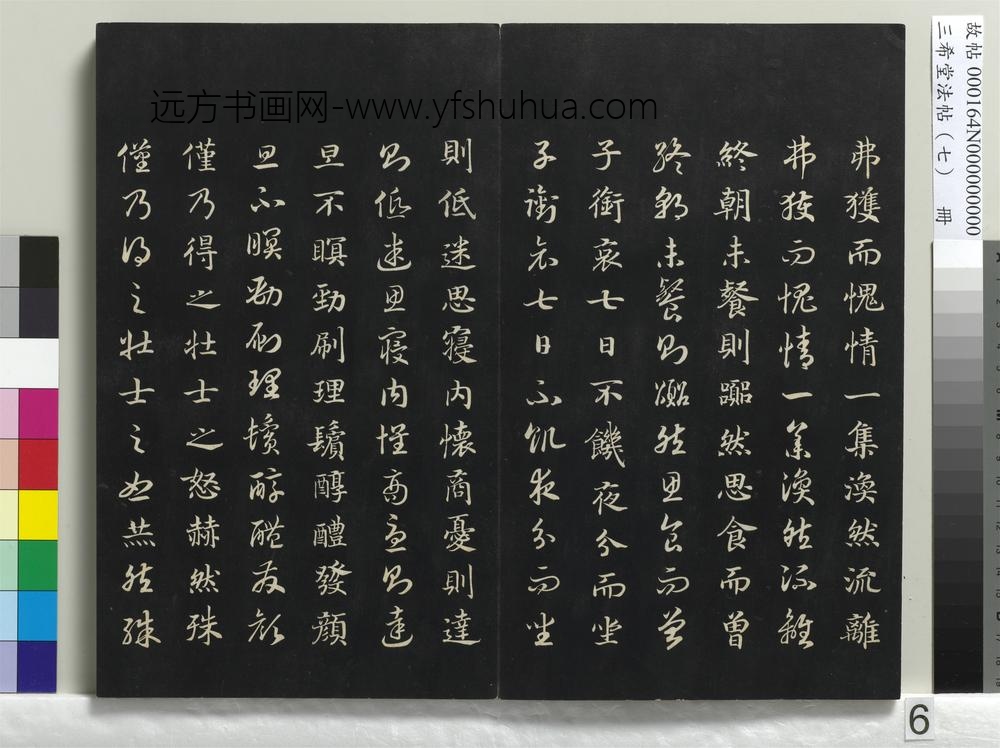 远方书画网-www.yfshuhua.com
故帖 000164N000000000
三希堂法帖(七) 冊
弗獲而愧情一集渙然流離
弗獲而愧情一集渙然流離
終朝未餐則囂然思食而曾
終朝未餐則囂然思食而曾
子銜哀七日不饑夜分而坐
子銜哀七日不飢夜分而坐
則低迷思寢內懷商憂則達
則低迷思寢內懷商憂則達
旦不瞑勁刷理鬢醇醴發顏
旦不瞑勁刷理鬢醇醴發顏
僅乃得之壯士之怒赫然殊
僅乃得之壯士之怒赫然殊
6